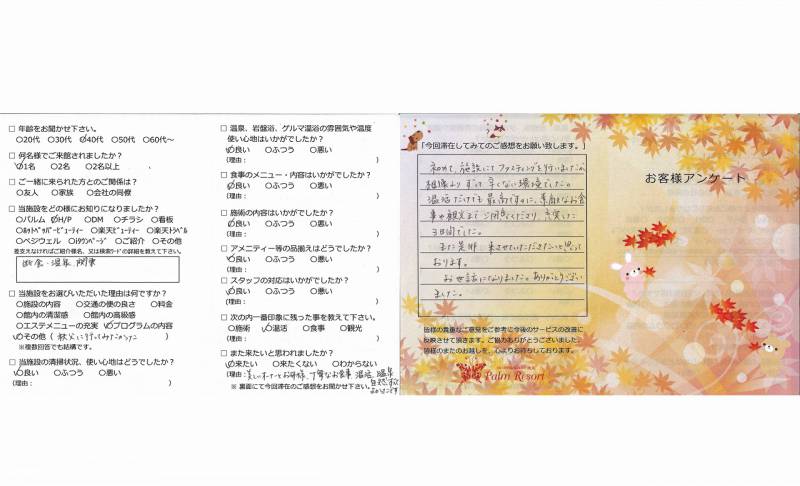 □ 年齢をお聞かせ下さい。
○20代 ○30代 ○40代 ○50代 ○60代～
□ 何名様でご来館されましたか？
○1名 ○2名 ○2名以上
□ ご一緒に来られた方とのご関係は？
○友人 ○家族 ○会社の同僚
□ 当施設をどの様にお知りになりましたか？
○パルム ○H/P ○DM ○チラシ ○看板
○ホットペッパービューティー ○楽天ビューティー ○楽天トラベル
○ベジウェル ○iタウンページ ○ご紹介 ○その他
差支えなければご紹介様名、又は検索ワードの詳細を教えて下さい。
断食・温泉 関東
□ 当施設をお選びいただいた理由は何ですか？
○施設の内容 ○交通の便の良さ ○料金
○館内の清潔感 ○館内の高級感
○エステメニューの充実 ○プログラムの内容
○その他（秩父に行ってみたかった）
※複数回答でも結構です。
□ 当施設の清掃状況、使い心地はどうでしたか？
○良い ○ふつう ○悪い
(理由： )
□ 温泉、岩盤浴、ゲルマ温浴の雰囲気や温度
使い心地はいかがでしたか？
○良い ○ふつう ○悪い
(理由： )
□ 食事のメニュー・内容はいかがでしたか？
○良い ○ふつう ○悪い
(理由： )
□ 施術の内容はいかがでしたか？
○良い ○ふつう ○悪い
(理由： )
□ アメニティー等の品揃えはどうでしたか？
○良い ○ふつう ○悪い
(理由： )
□ スタッフの対応はいかがでしたか？
○良い ○ふつう ○悪い
(理由： )
□ 次の内一番印象に残った事を教えて下さい。
○施術 ○温活 ○食事 ○観光
(理由： )
□ また来たいと思われましたか？
○来たい ○来たくない ○わからない
(理由：美しいオーナーとお母様、丁寧なお食事 温活、温泉
※ 裏面にて今回滞在のご感想をお聞かせ下さい。
「今回滞在してみてのご感想をお願い致します。」
初めて、施設にてファスティングを行いましたが、
想像より ずっと 辛くない環境でした。
温活だけでも 最高ですのに、素敵なお食
事や観光まで ご用意くださり、充実した
3日間でした。
また是非 来させていただきたいと思って
おります。
お世話になりました。ありがとうござい
ました。
皆様の貴重なご意見をご参考に今後のサービスの改善に
反映させて頂きます。ご協力ありがとうございました。
皆様のまたのお越しを、心よりお待ちしております。
Palm Resort
お客様アンケート